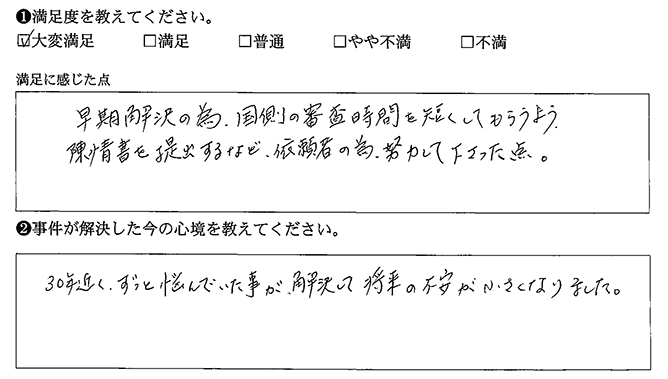 ❶満足度を教えてください。
☑大変満足 □満足 □普通 □やや不満 □不満
満足に感じた点
早期解決の為、国側の審査時間を短くしてもらうよう、
陳情書を提出するなど、依頼者の為、努力して下さった点。
❷事件が解決した今の心境を教えてください。
30年近く、ずっと悩んでいた事が、解決して将来の不安が小さくなりました。